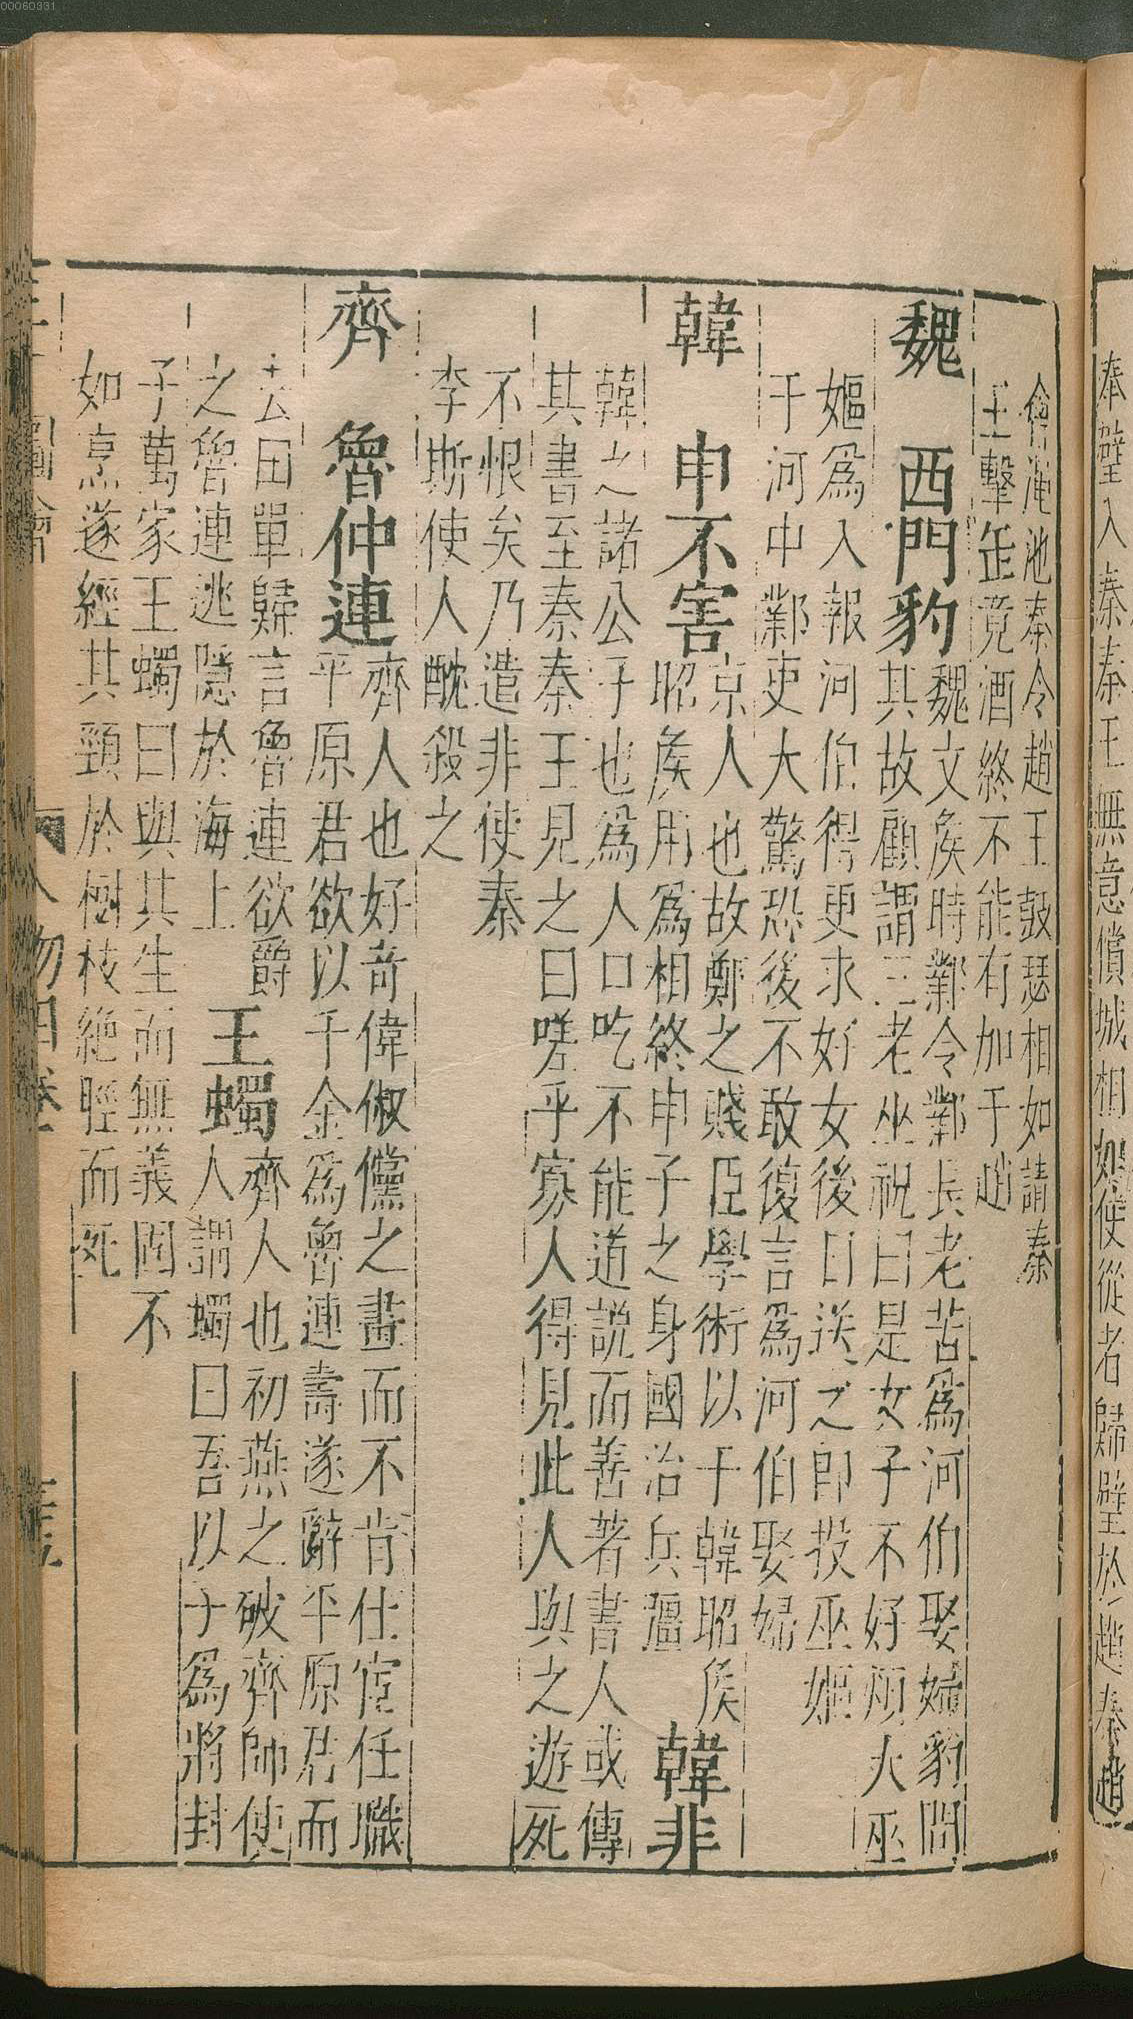 00060331
奉璧入秦秦王無意償城相如使從者歸璧於趙秦趙
會澠池秦令趙王鼓瑟相如請秦
王擊缶竟酒終不能有加于趙
魏 西門豹
魏文侯時鄴令鄴長老苦爲河伯娶婦豹問
其故顧謂三老巫祝曰是女子不好煩大巫
嫗爲入報河伯得更求好女後日送之即投巫嫗
于河中鄴吏大驚恐後不敢復言爲河伯娶婦
韓 申不害
京人也故鄭之賤臣學術以干韓昭侯
昭侯用爲相終申子之身國治兵彊
韓非
韓之諸公子也爲人口吃不能道説而善著書人或傳
其書至秦秦王見之曰嗟乎寡人得見此人與之遊死
不恨矣乃遣非使秦
李斯使人酖殺之
齊 魯仲連
齊人也好奇偉俶儻之畫而不肯仕宦任職
平原君欲以千金爲魯連壽遂辭平原君而
去田單歸言魯連欲爵
之魯連逃隱於海上
王蠋
齊人也初燕之破齊師使
人謂蠋曰吾以子爲將封
子萬家王蠋曰與其生而無義固不
如烹遂經其頸於樹枝絶脰而死
三才圖會
人物四卷